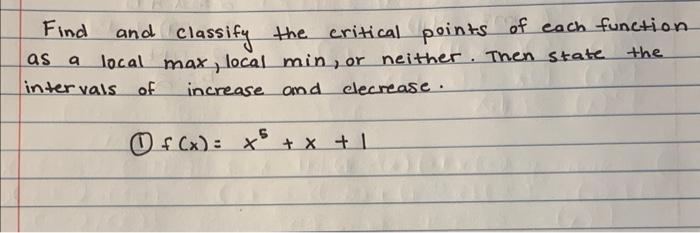 Find and classify the critical points of each function
as a local max, local min, or neither. Then state the
intervals of increase and decrease.
① f(x) = x⁵ + x + 1